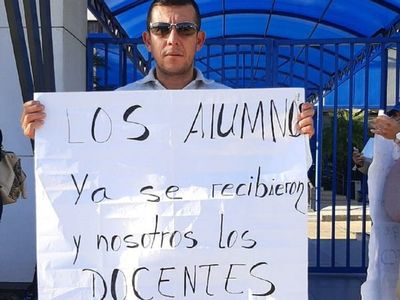 LOS AlUMNO
Ya se recibieron
y nosotros los
DOCENTES